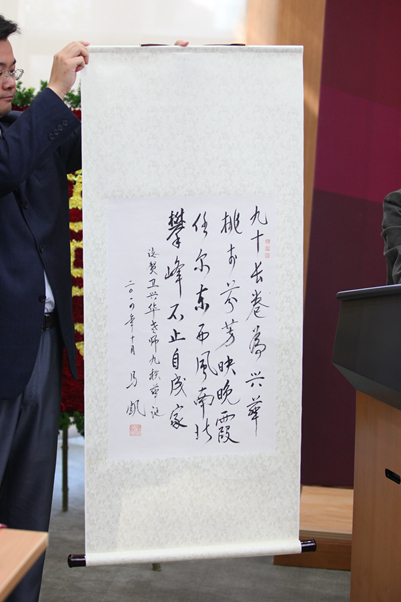 九十长卷為兴華
桃李芬芳映晚霞
任尔东西風南北
攀峰不止自成家
贺卫兴华老师九秩華诞
二〇一四年十月 马凯